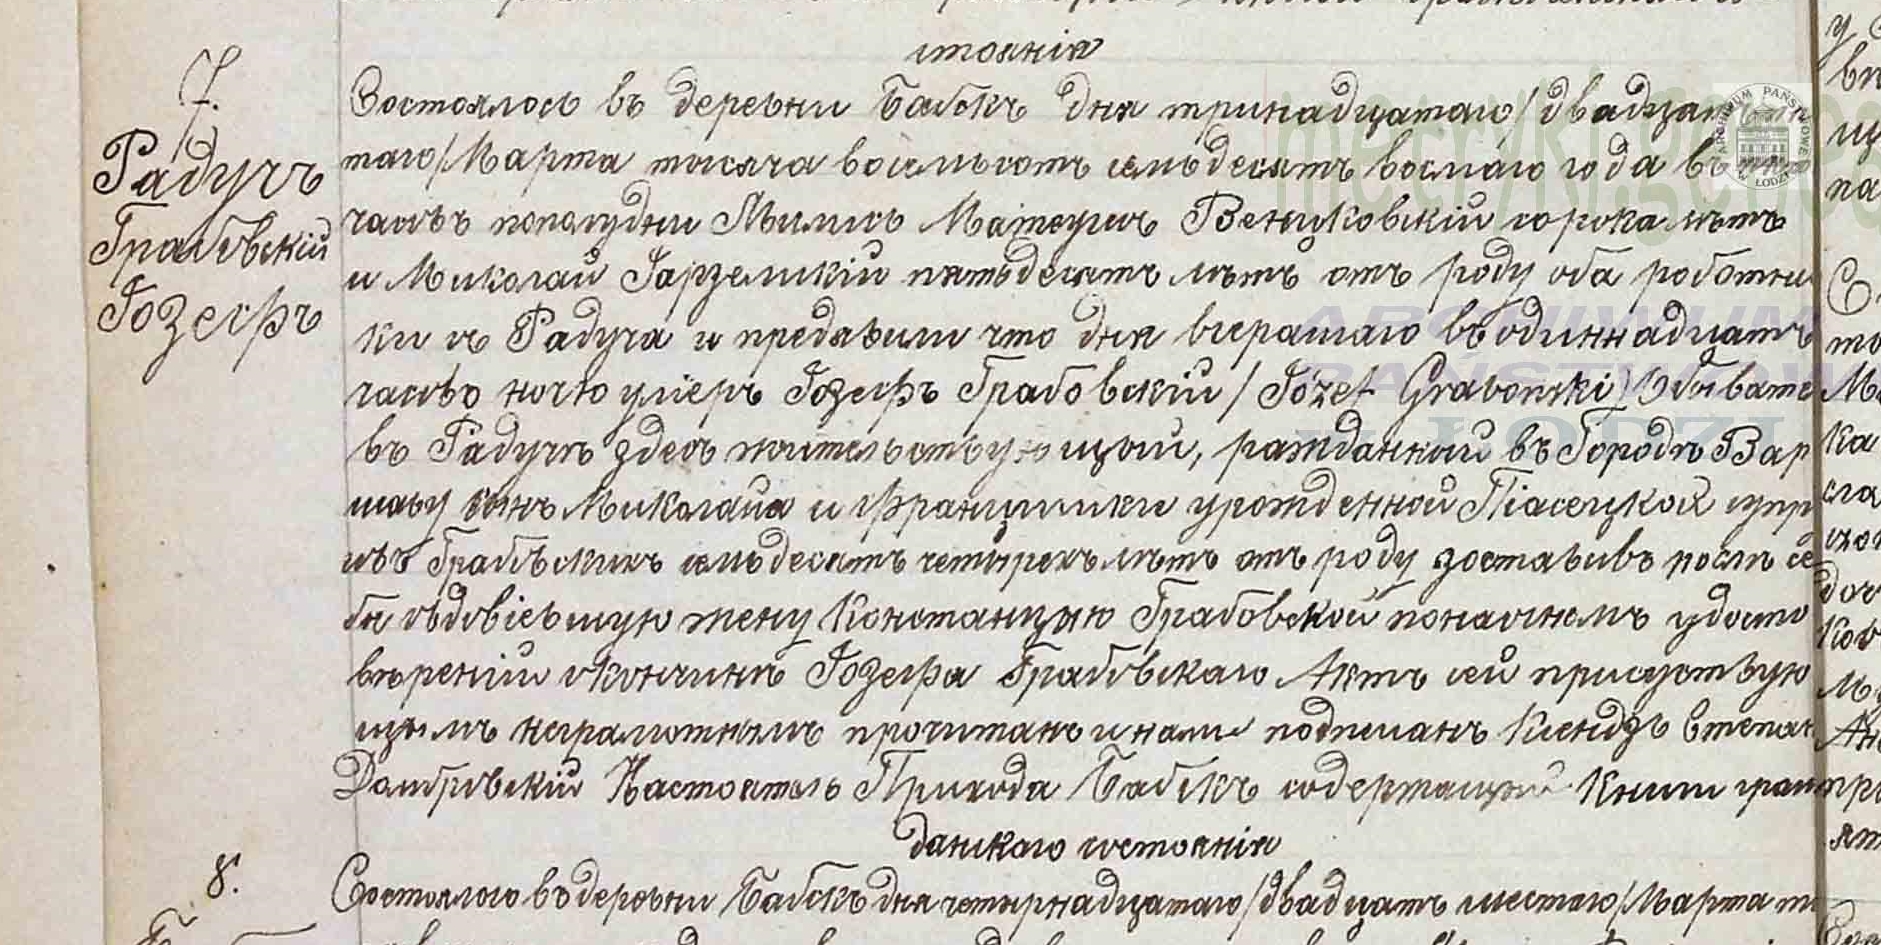 стоянія
7.
Состоялось въ деревни Бабскъ дня тринадцатаго / двадцать
Радучъ
таго / Марта тысяча восемьсотъ семьдесятъ восмаго года въ
Грабовскій
часовъ пополудни Явились Матеушъ Венцковскій сорока лѣтъ
и Миколай Гарзелискій пятьдесятъ лѣтъ отъ роду оба работни
Іозефъ
ки съ Радуча и предъявили что дня вчерашаго въ одиннадцать
часовъ ночю умеръ Іозефъ Грабовскій / Józef Grabowski /
въ Радучѣ здесь жительствующій, рожданный въ Городѣ Вар
шаву сынъ Миколая и Францишки урожденной Піасецкой супр
овъ Грабовскихъ семьдесятъ четырехъ лѣтъ отъ роду зоставивъ послѣ се
бя овдовіевшую жену Констанцыю Грабовской понаочномъ удосто
вѣреніи окончинѣ Іозефа Грабовскаго Актъ сей присуствую
щымъ неграмотнымъ прочитанъ и нами подписанъ Ксендзъ Степан
Домбровскій Настоятель Прихода Бабскъ содержащый Книги граж
данскаго состоянія
8.
Состоялось въ деревни Бабскъ дня четырнадцатаго / двадцать шестаго / Марта ты
ARCHIWUM PAŃSTWOWE W ŁODZI
ARCHIWUM
PAŃSTWOWE
W ŁODZI